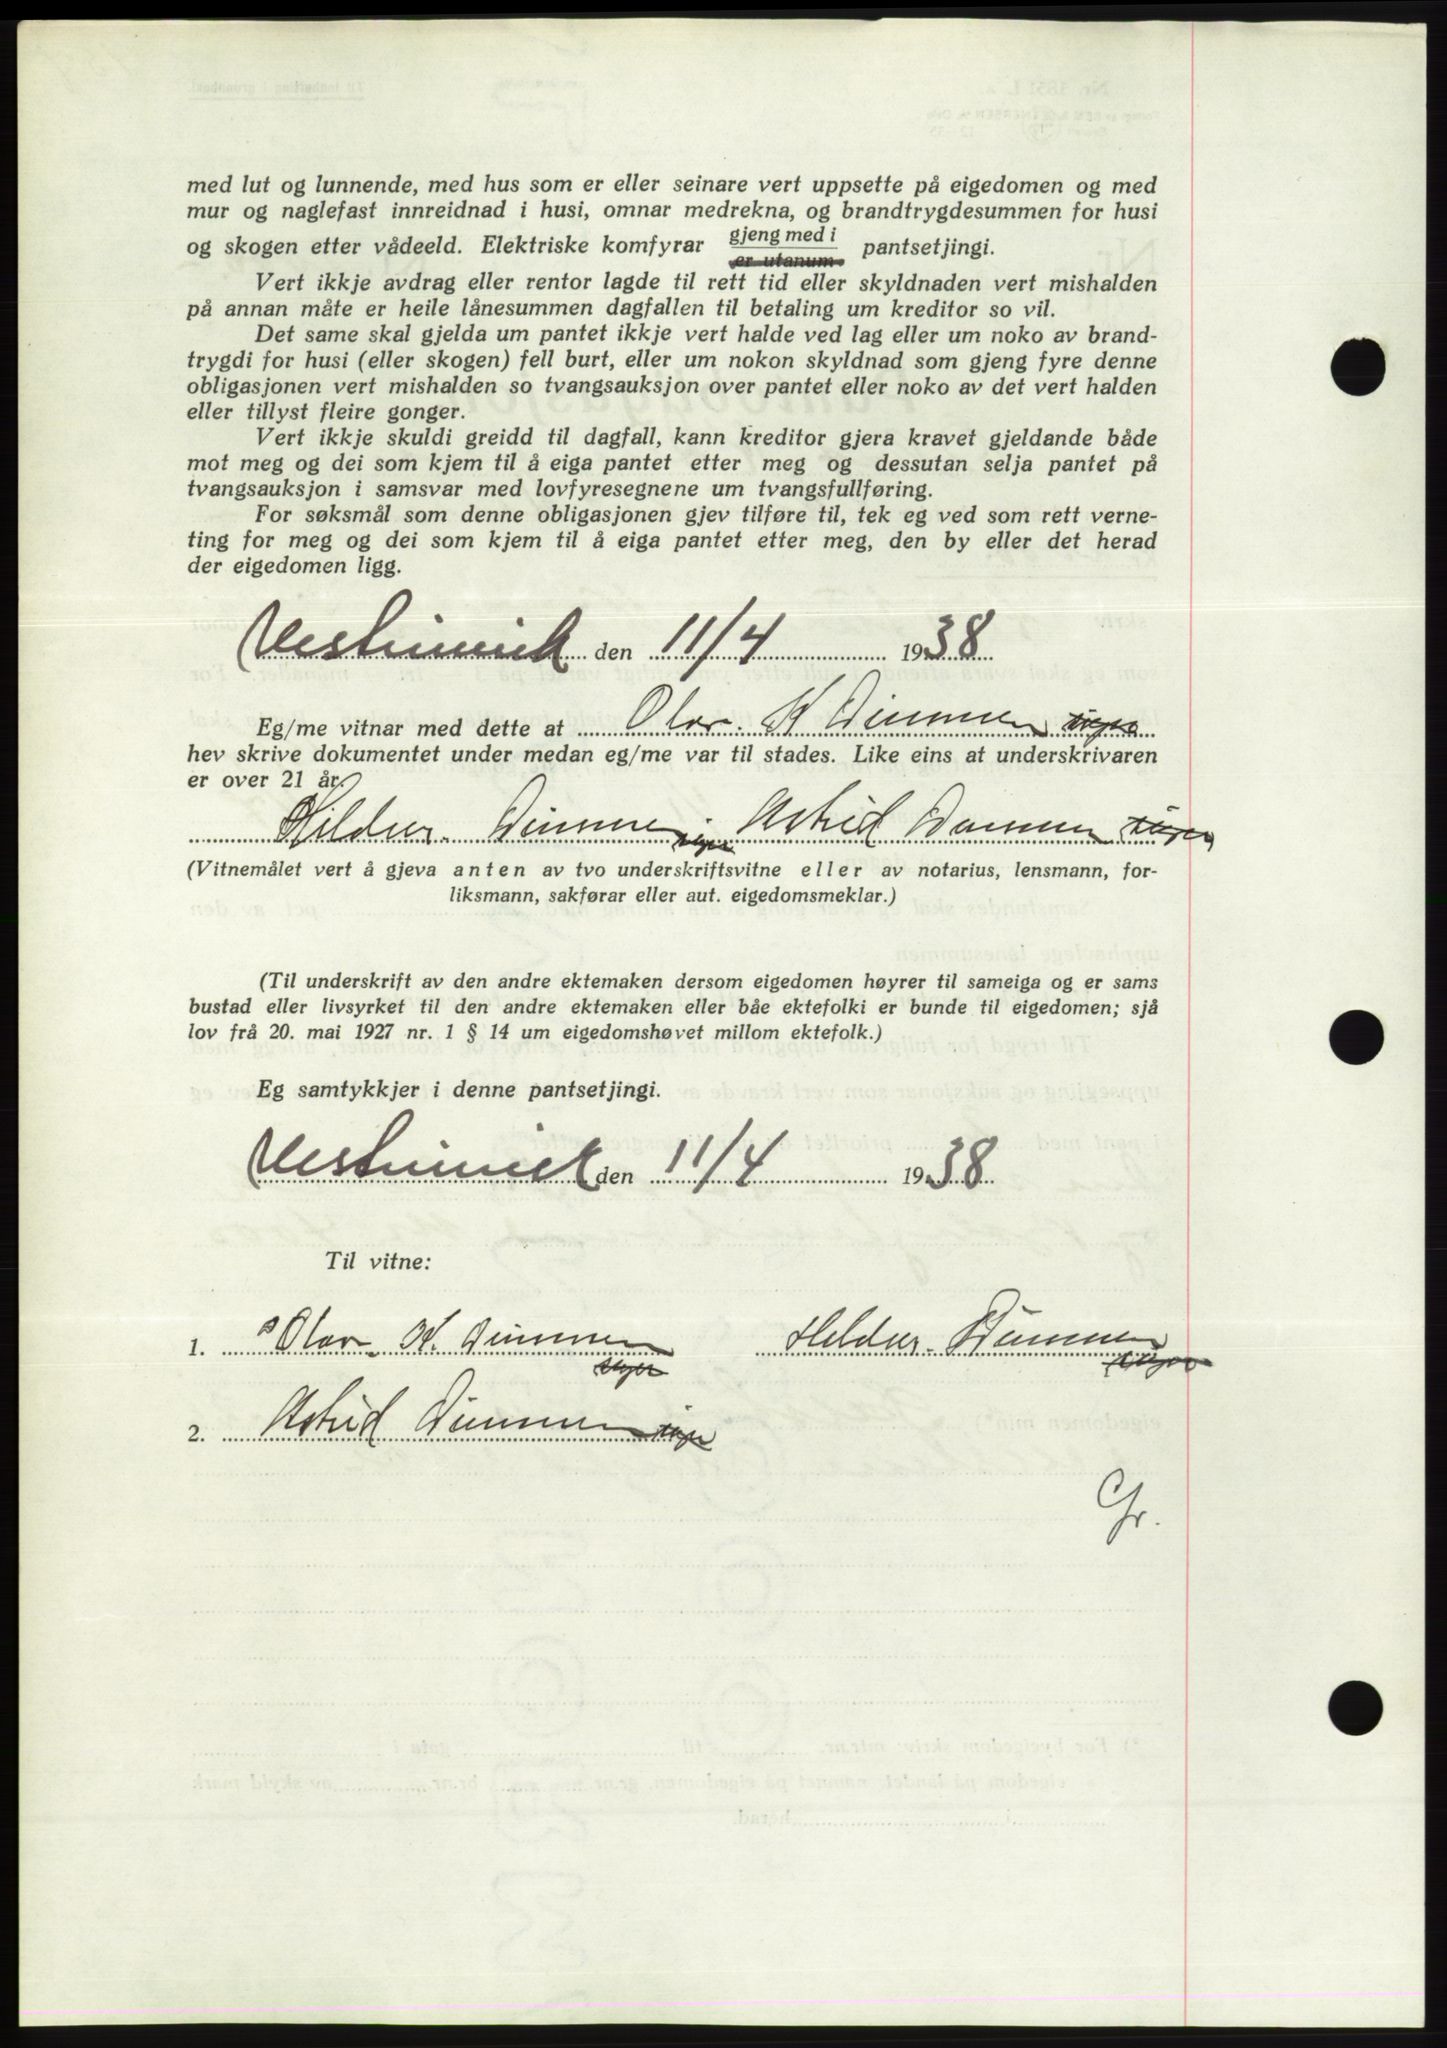 med lut og lunnende, med hus som er eller seinare vert uppsette på eigedomen og med
mur og naglefast innreidnad i husi, omnar medrekna, og brandtrygdesummen for husi
og skogen etter vådeeld. Elektriske komfyrar gjeng med i er utanum pantsetjingi.
Vert ikkje avdrag eller rentor lagde til rett tid eller skyldnaden vert mishalden
på annan måte er heile lånesummen dagfallen til betaling um kreditor so vil.
Det same skal gjelda um pantet ikkje vert halde ved lag eller um noko av brand-
trygdi for husi (eller skogen) fell burt, eller um nokon skyldnad som gjeng fyre denne
obligasjonen vert mishalden so tvangsauksjon over pantet eller noko av det vert halden
eller tillyst fleire gonger.
Vert ikkje skuldi greidd til dagfall, kann kreditor gjera kravet gjeldande både
mot meg og dei som kjem til å eiga pantet etter meg og dessutan selja pantet på
tvangsauksjon i samsvar med lovfyresegnene um tvangsfullføring.
For søksmål som denne obligasjonen gjev tilføre til, tek eg ved som rett verne-
ting for meg og dei som kjem til å eiga pantet etter meg, den by eller det herad
der eigedomen ligg.
den 11/4 1938
Eg/me vitnar med dette at Olav K Dimmen
hev skrive dokumentet under medan eg/me var til stades. Like eins at underskrivaren
er over 21 år.
Hildur Dimmen Astrid Dimmen
(Vitnemålet vert å gjeva anten av tvo underskriftsvitne eller av notarius, lensmann, for-
liksmann, sakførar eller aut. eigedomsmeklar.)
(Til underskrift av den andre ektemaken dersom eigedomen høyrer til sameiga og er sams
bustad eller livsyrket til den andre ektemaken eller båe ektefolki er bunde til eigedomen; sjå
lov frå 20. mai 1927 nr. 1 § 14 um eigedomshøvet millom ektefolk.)
Eg samtykkjer i denne pantsetjingi.
den 11/4 1938
Til vitne:
1. Olav K. Dimmen Hildur Dimmen
2. Astrid Dimmen
Gr.